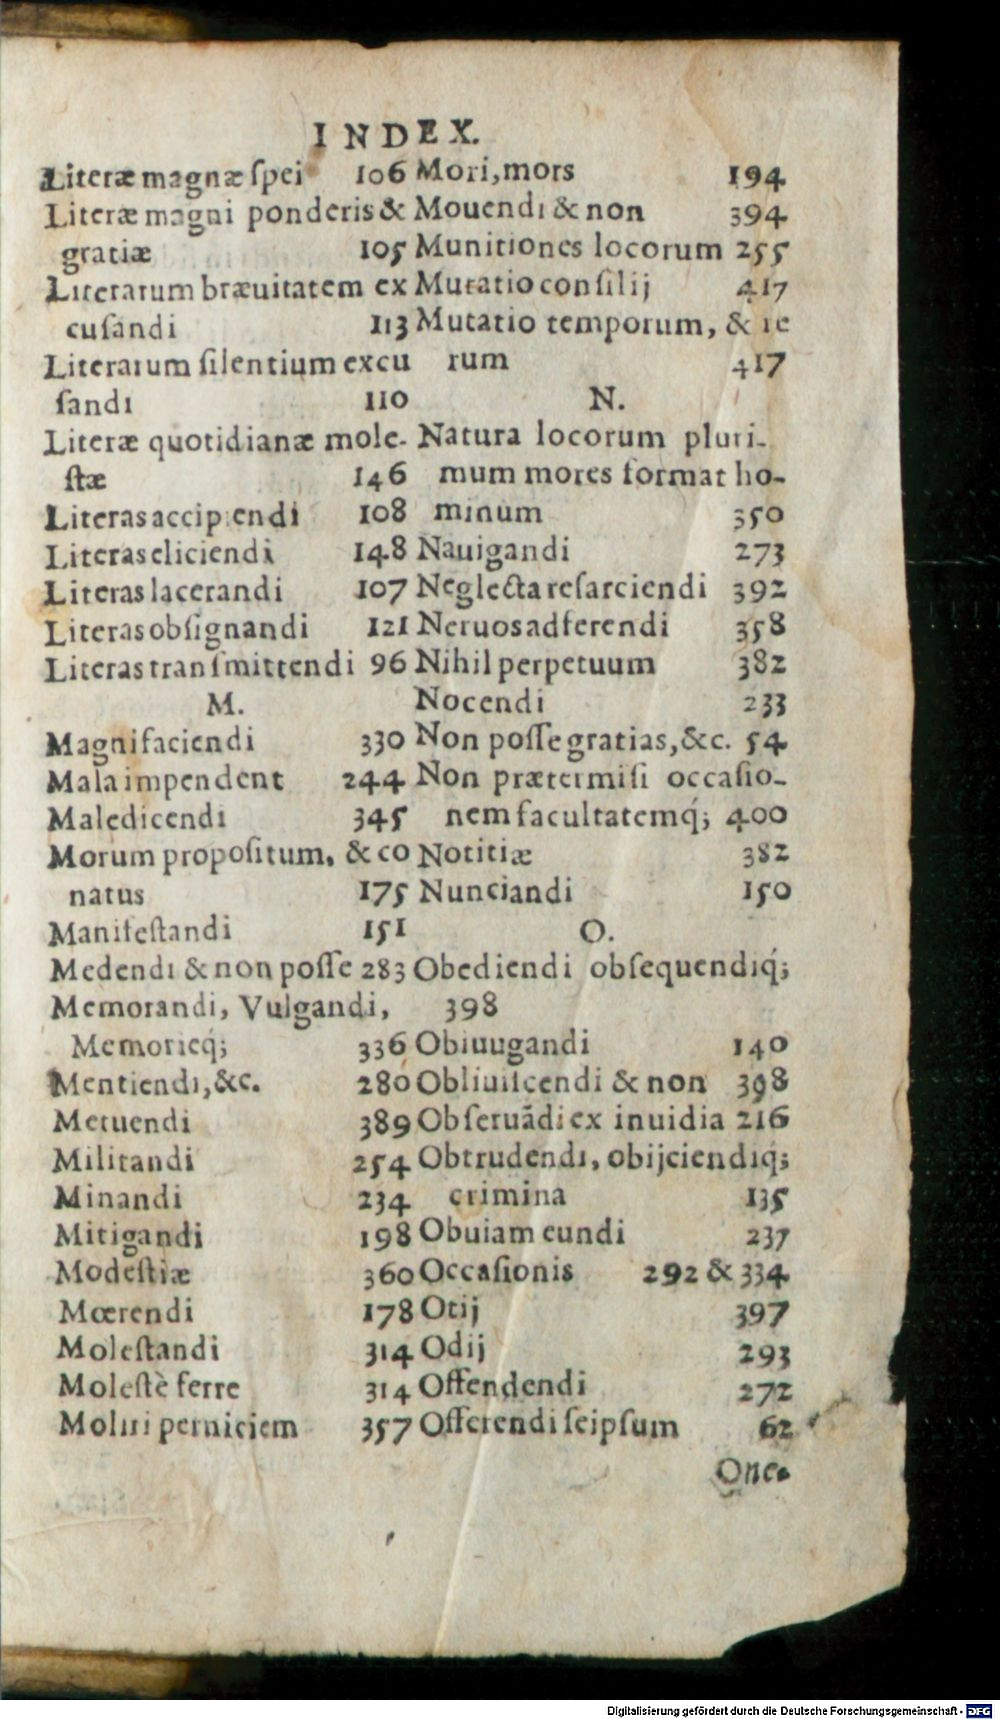 INDEX.
Literæ magnæ ſpei 106
Literæ magni ponderis &
gratiæ 105
Literarum bræuitatem ex
cuſandi 113
Literarum ſilentium excu
ſandi 110
Literæ quotidianæ mole-
ſtæ 146
Literas accipiendi 108
Literas eliciendi 148
Literas lacerandi 107
Literas obſignandi 121
Literas tranſmittendi 96
M.
Magnifaciendi 330
Mala impendent 244
Maledicendi 345
Morum propoſitum, & co
natus 175
Manifeſtandi 151
Medendi & non poſſe 283
Memorandi, Vulgandi,
Memorieq́; 336
Mentiendi, &c. 280
Metuendi 389
Militandi 254
Minandi 234
Mitigandi 198
Modeſtiæ 360
Mœrendi 178
Moleſtandi 314
Moleſtè ferre 314
Moliri perniciem 357
Mori, mors 194
Mouendi & non 394
Munitiones locorum 255
Mutatio conſilij 417
Mutatio temporum, & re
rum 417
N.
Natura locorum pluri-
mum mores format ho-
minum 350
Nauigandi 273
Neglecta reſarciendi 392
Neruos adferendi 358
Nihil perpetuum 382
Nocendi 233
Non poſſe gratias, &c. 54
Non prætermiſi occaſio-
nem facultatemq́; 400
Notitiæ 382
Nunciandi 150
O.
Obediendi obſequendiq́;
398
Obiuugandi 140
Obliuiſcendi & non 398
Obſeruãdi ex inuidia 216
Obtrudendi, obijciendiq́;
crimina 135
Obuiam eundi 237
Occaſionis 292 & 334
Otij 397
Odij 293
Offendendi 272
Offerendi ſeipſum 62
One-
Digitalisierung gefördert durch die Deutsche Forschungsgemeinschaft - DFG